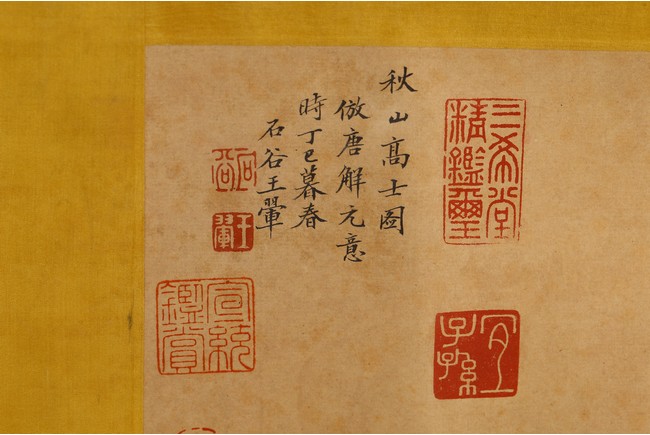 三希堂
精鑑璽
宜
子孫
秋山高士圖
倣唐解元意
時丁巳暮春
石谷王翬
石谷
王翬
宣統
鑑賞